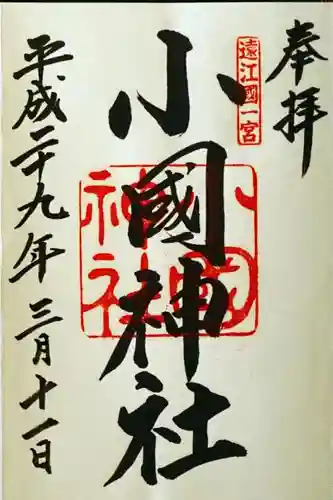 奉拝
遠江國一宮
小國神社
小國神社
平成二十九年三月十一日